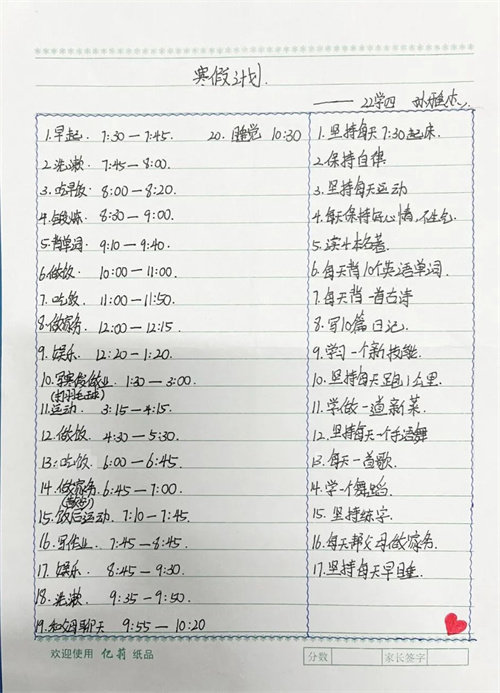 寒假计划.
—— 22学四 孙雅
1.早起. 7:30—7:45. 20. 睡觉 10:30
2.洗漱. 7:45—8:00.
3.吃早饭. 8:00—8:20
4.锻炼. 8:30—9:00.
5.背单词. 9:10—9:40.
6.做饭 10:00—11:00
7.吃饭. 11:00—11:50
8.做家务 12:00—12:15.
9.娱乐. 12:20—1:20.
10.写寒假作业. 1:30—3:00.
(打羽毛球)
11.运动. 3:15—4:15.
12.做饭. 4:30—5:30.
13.吃饭. 6:00—6:45
14.做家务. 6:45—7:00
15.饭后运动. 7:10—7:45.
16.写作业. 7:45—8:45.
17.娱乐. 8:45—9:30.
18.洗漱. 9:35—9:50.
19.和父母聊天 9:55—10:20
1.坚持每天7:30起床.
2.保持自律
3.坚持每天运动
4.每天保持好心情,不生气.
5.读4本名著.
6.每天背10个英语单词.
7.每天背一首古诗
8.写10篇日记.
9.学习一个新技能.
10.坚持每天跑1公里.
11.学做一道新菜.
12.坚持每天一个手语舞
13.每天一首歌.
14.学一个舞蹈.
15.坚持练字.
16.每天帮父母做家务.
17.坚持每天早睡.
欢迎使用 亿莉 纸品
分数 家长签字